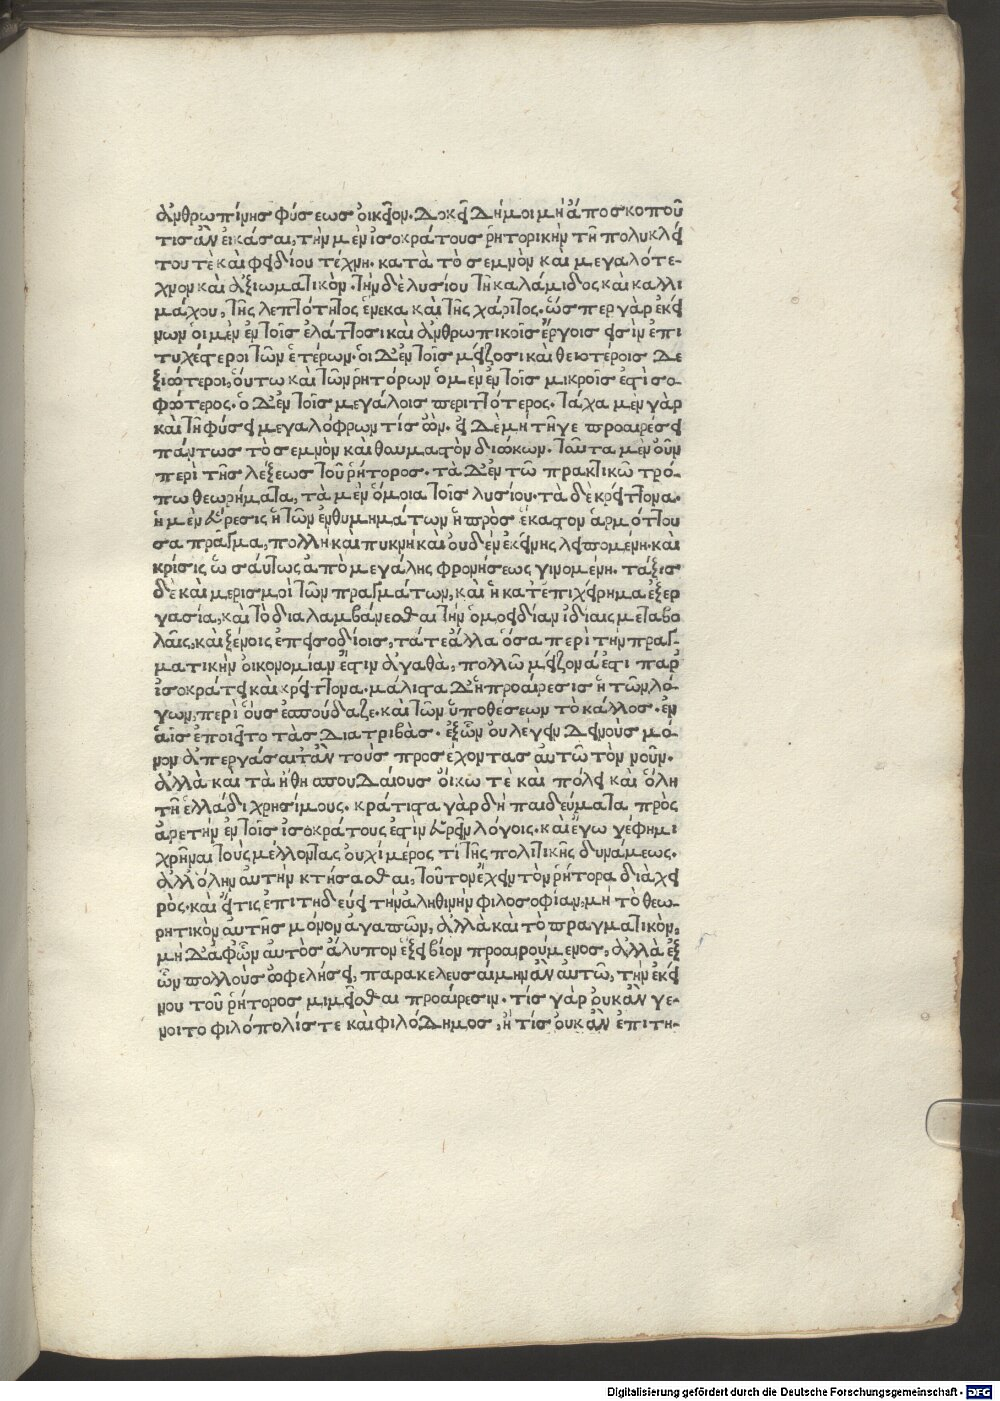 ἀνθρωπίνης φύσεως οἰκεῖον. Δοκεῖ Δή μοι μὴ ἀπο σκοποῦ
τις ἂν εἰκάσαι, τὴν μὲν ἰσοκράτους ῥητορικὴν τῇ πολυκλεί
του τὲ καὶ φειδίου τέχνῃ. κατὰ τὸ σεμνὸν καὶ μεγαλότε-
χνον καὶ ἀξιωματικὸν. τὴν δὲ λυσίου τῇ καλάμιδος καὶ καλλι
μάχου, τῆς λεπτότητος ἕνεκα καὶ τῆς χάριτος. ὥς περ γὰρ ἐκεί
νων ὁι μὲν ἐν τοῖς ἐλάττοσι καὶ ἀνθρωπικοῖς ἔργοις εἰσὶν ἐπι
τυχέστεροι τῶν ἑτέρων. ὁι Δ' ἐν τοῖς μείζοσι καὶ θειοτέροις Δε
ξιώτεροι, ὅυτω καὶ τῶν ῥητόρων ὁ μὲν ἐν τοῖς μικροῖς ἐστὶ σο-
φώτερος. ὁ Δ' ἐν τοῖς μεγάλοις περιττότερος. τάχα μὲν γὰρ
καὶ τῇ φύσει μεγαλόφρων τίς ὢν. εἰ Δὲ μὴ τῇ γε προαιρέσει
πάντως τὸ σεμνὸν καὶ θαυμαστὸν διώκων. ταῦτα μὲν οὖν
περὶ τῆς λέξεως τοῦ ῥήτορος. τὰ Δ' ἐν τῶ πρακτικῶ τρό-
πω θεωρήματα, τὰ μὲν ὅμοια τοῖς λυσίου. τὰ δὲ κρείττονα.
ἡ μὲν εὕρεσις ἡ τῶν ἐνθυμημάτων ἡ πρὸς ἕκαστον ἁρμόττου
σα πρᾶγμα, πολλὴ καὶ πυκνὴ καὶ ουδὲν ἐκείνης λειπομένη. καὶ
κρίσις ὡσάυτως ἀπὸ μεγάλης φρονήσεως γινομένη. τάξις
δὲ καὶ μερισμοὶ τῶν πραγμάτων, καὶ ἡ κατ' ἐπιχείρημα ἐξερ
γασία, καὶ τὸ διαλαμβάνεσθαι τὴν ὁμοείδιαν ἰδίαις μεταβο
λαῖς, καὶ ξένοις ἐπεισοδίοις, τά τε ἄλλα ὅσα περὶ τὴν πραγ-
ματικὴν οἰκονομίαν ἐστὶν ἀγαθὰ, πολλῶ μείζονά ἐστι παρ'
ἰσοκράτει καὶ κρείττονα. μάλιστα Δ' ἡ προάιρεσις ἡ τῶν λό-
γων, περὶ ὅυς ἐσπούδαζε. καὶ τῶν ὑποθέσεων τὸ κάλλος. ἐν
ἅις ἐποιεῖτο τὰς Διατριβὰς. ἐξ ὧν ου λέγειν Δεινοὺς μό-
νον ἀπεργάσαιτ' ἂν τοὺς προσέχοντας ἀυτῶ τὸν νοῦν.
ἀλλὰ καὶ τὰ ἤθη σπουΔάιους ὄικω τὲ καὶ πόλει καὶ ὅλη
τῇ ἑλλάδι χρησίμους. κράτιστα γὰρ δὴ παιδεύματα πρὸς
ἀρετὴν ἐν τοῖς ἰσοκράτους ἐστὶν εὑρεῖν λόγοις. καὶ ἔγωγέ φημι
χρῆναι τοὺς μέλλοντας ουχὶ μέρος τὶ τῆς πολιτικῆς δυνάμεως.
ἀλλ' ὅλην αυτὴν κτήσασθαι, τοῦτον ἔχειν τὸν ῥήτορα διὰ χει
ρὸς. καὶ εἴ τις ἐπιτηδεύει τὴν ἀληθινὴν φιλοσοφίαν, μὴ τὸ θεω-
ρητικὸν αυτῆς μόνον ἀγαπῶν, ἀλλὰ καὶ τὸ πραγματικὸν,
μὴ Δ' ἀφ' ὧν αυτὸς ἄλυπον ἕξει βίον προαιρούμενος, ἀλλὰ ἐξ
ὧν πολλοὺς ὠφελήσει, παρακελευσάιμην ἂν αυτῶ, τὴν ἐκεί
νου τοῦ ῥήτορος μιμεῖσθαι προάιρεσιν. τίς γὰρ ουκ ἂν γέ-
νοιτο φιλόπολίς τε καὶ φιλόΔημος, ἢ τίς ουκ ἂν ἐπιτη-
Digitalisierung gefördert durch die Deutsche Forschungsgemeinschaft - DFG